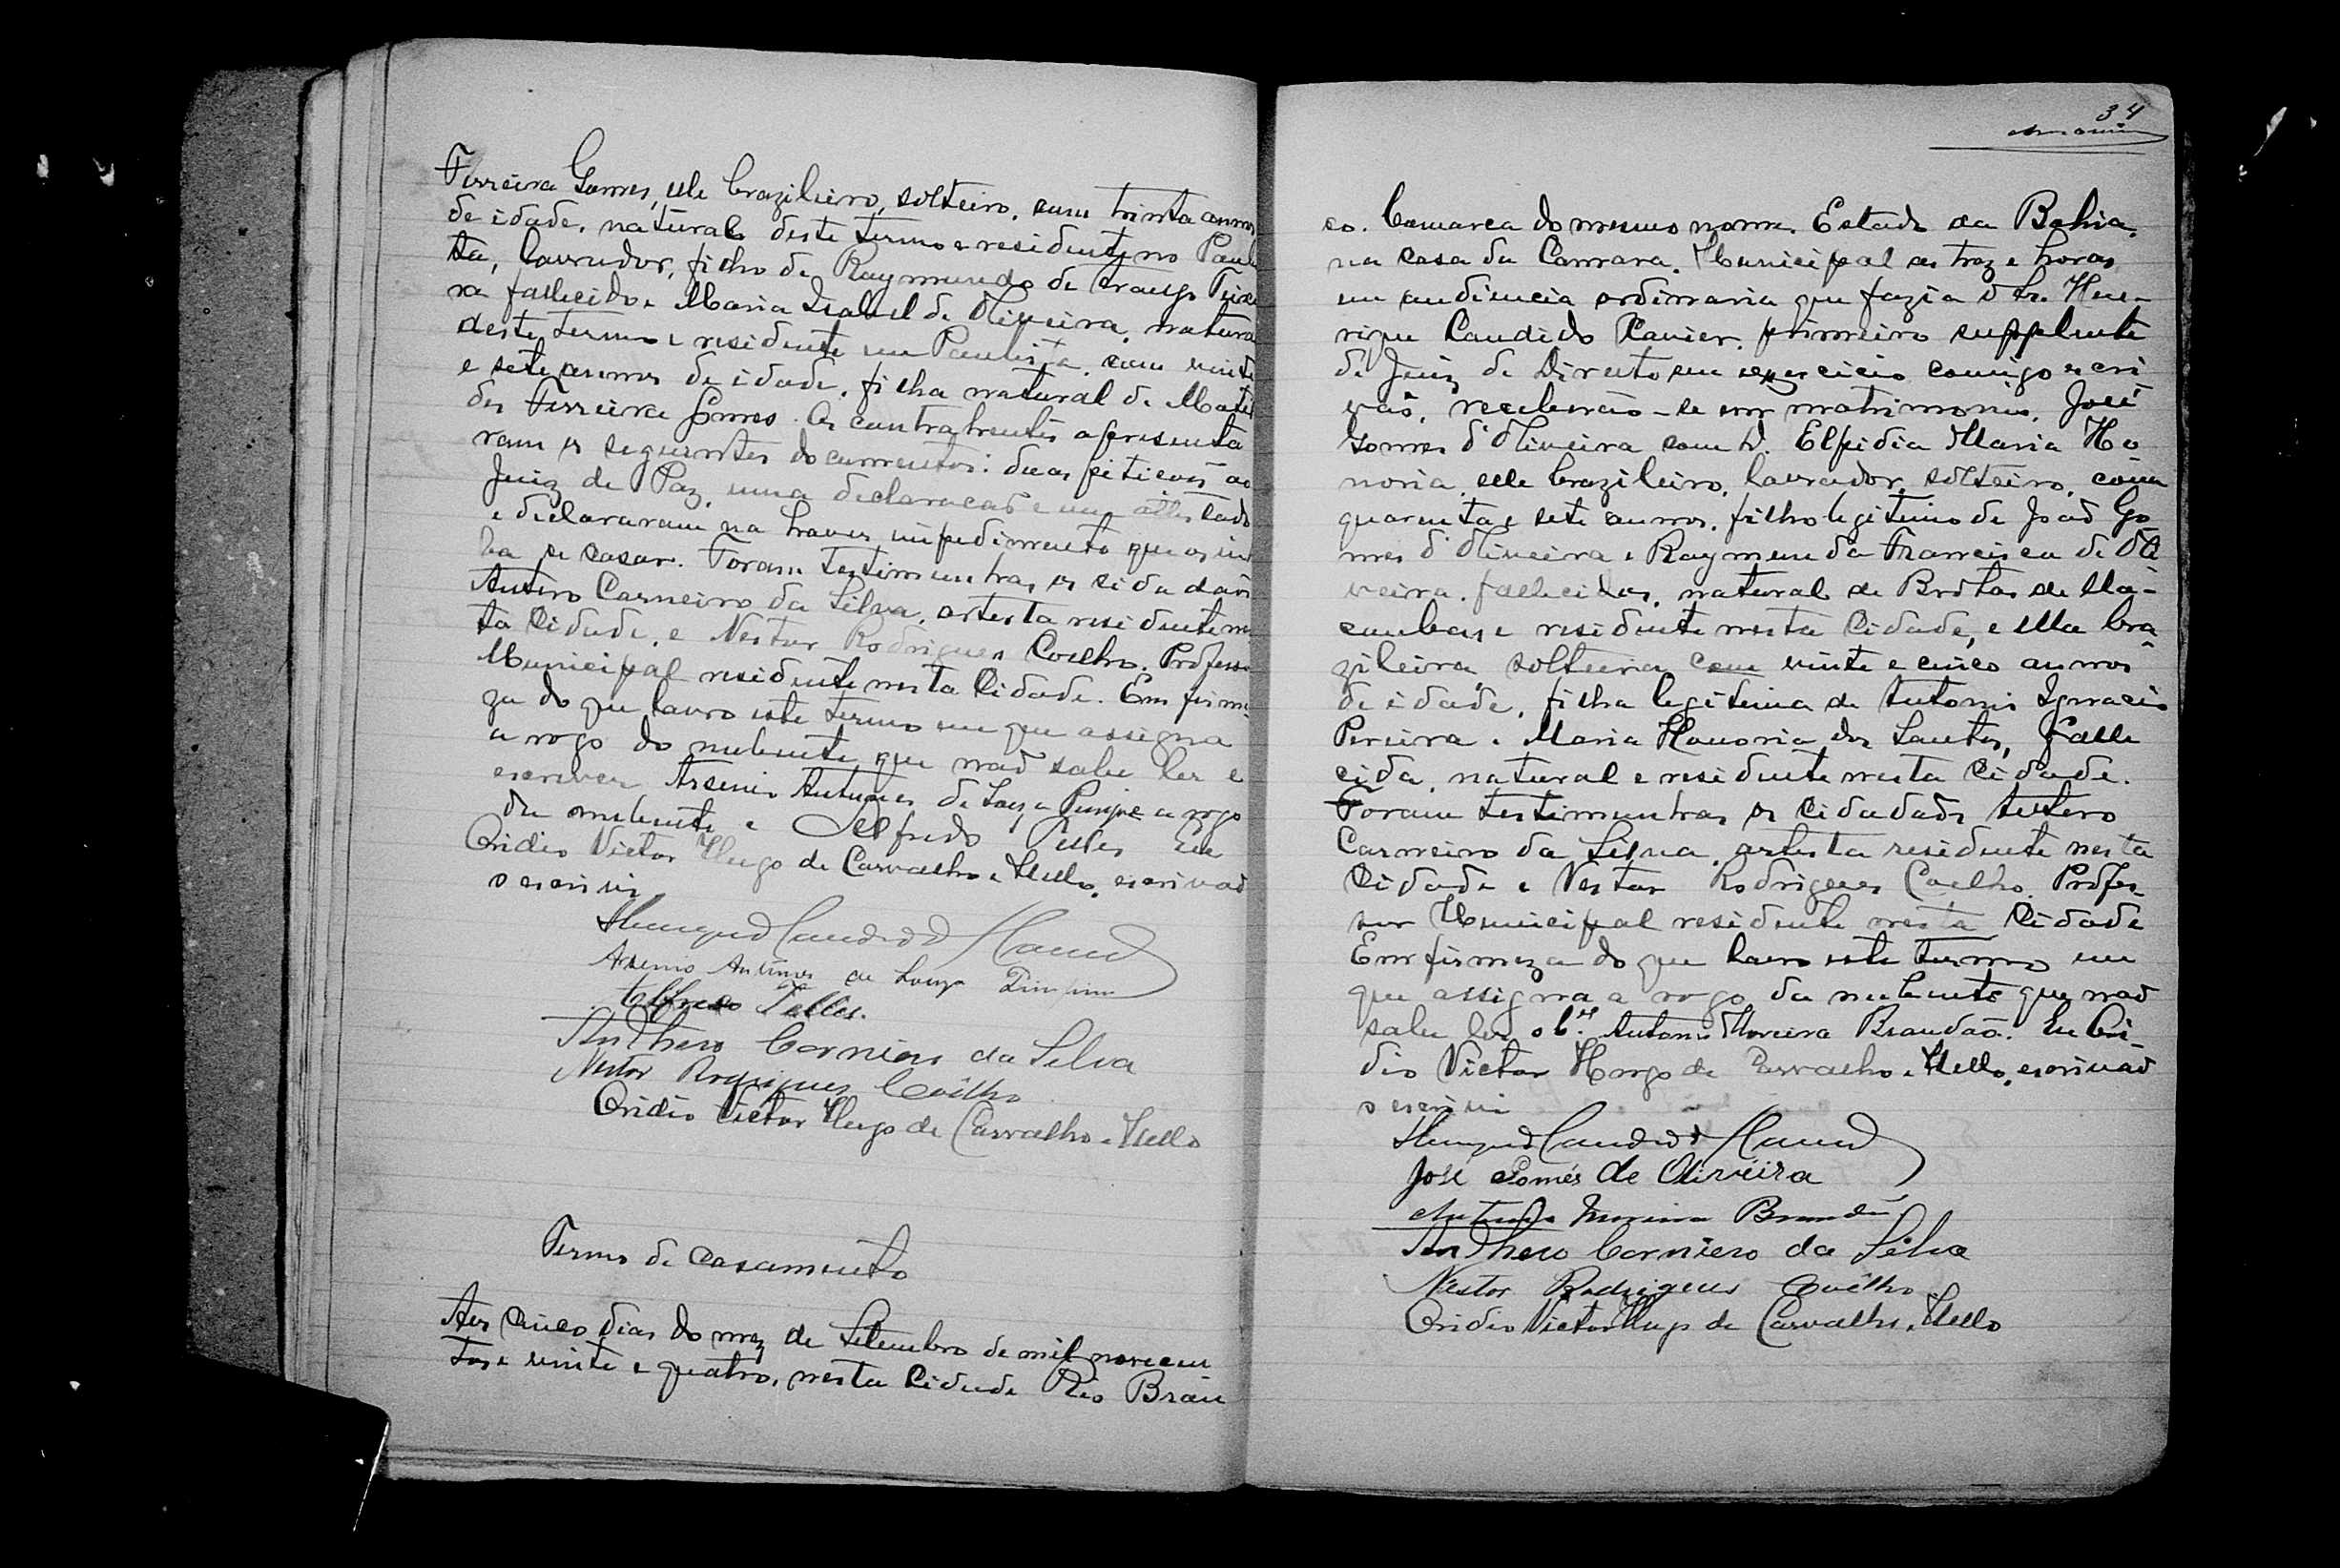 Ferreira Gomes, elle brazileiro, solteiro, com trinta annos
de idade, natural deste termo e residente no Paulis
ta, lavrador, filho de Raymundo de Araujo Teixe
ra fallecido e Maria Izabel de Oliveira, natural
deste termo e residente em Paulista, com vinte
e sete annos de idade, filha natural de Matil
des Ferreira Gomes. Os contrahentes apresenta
ram os seguintes documentos: duas petições ao
Juiz de Paz, uma declaração e um attestado
e declararam na haver impedimento que os in
ba se casar. Foram testimunhas os cidadãos
Antero Carneiro da Silva, artista residente nes
ta Cidade, e Nestor Rodrigues Coelho, Professor
Municipal residente nesta Cidade. Em firme
za do que lavro este termo em que assigna
a rogo do nubente que naõ sabe ler e
escrever Arsenio Antunes de Souza a rogo
da nubente e Alfredo Telles Eu
Ovidio Victor Hugo de Carvalho e Mello, escrivaõ
o escrivi
Henrique Candido Xavier
Arsenio Antunes de Souza
Alfredo Telles.
Anthero Carneiro da Silva
Nestor Rodrigues Coêlho
Ovidio Victor Hugo de Carvalho e Mello
Termo de Casamento
Aos cinco dias do mez de Setembro de mil novecen
tos e vinte e quatro, nesta Cidade Rio Bran
34
co. Comarca do mesmo nome, Estado da Bahia,
na casa da Camara Municipal as treze horas
em audiencia ordinaria que fazia o Cr. Hen-
rique Candido Xavier, primeiro supplente
de Juiz de Direito em exercicio comigo escri
vaõ, receberão-se em matrimonio, José
Gomes d'Oliveira com D. Elpidia Maria Ho
noria, elle brazileiro, lavrador, solteiro, com
quarenta e sete annos, filho legitimo de Joaõ Go
mes d'Oliveira e Raymunda Francisca de Oli
veira, fallecidos, natural de Brotas de Ma-
caubas e residente nesta Cidade, e ella bra
zileira solteira com vinte e cinco annos
de idade, filha legitima de Antonio Ignacio
Pereira e Maria Honoria dos Santos, falle
cida, natural e residente nesta Cidade.
Foram testimunhas os Cidadaõs Antero
Carneiro da Silva, artista residente nesta
Cidade e Nestor Rodrigues Coelho, Profes-
sor Municipal residente nesta Cidade
Em firmeza do que lavro este termo em
que assigna a rogo da nubente que naõ
sabe ler o Antonio Moreira Brandaõ. Eu Ovi-
dio Victor Hugo de Carvalho e Mello, escrivaõ
o escrivi
Henrique Candido Xavier
José Gomés de Oliveira
Antonio Moreira Brandão
Anthero Carniero da Silva
Nestor Rodrigues Coêlho
Ovidio Victor Hugo de Carvalho e Mello